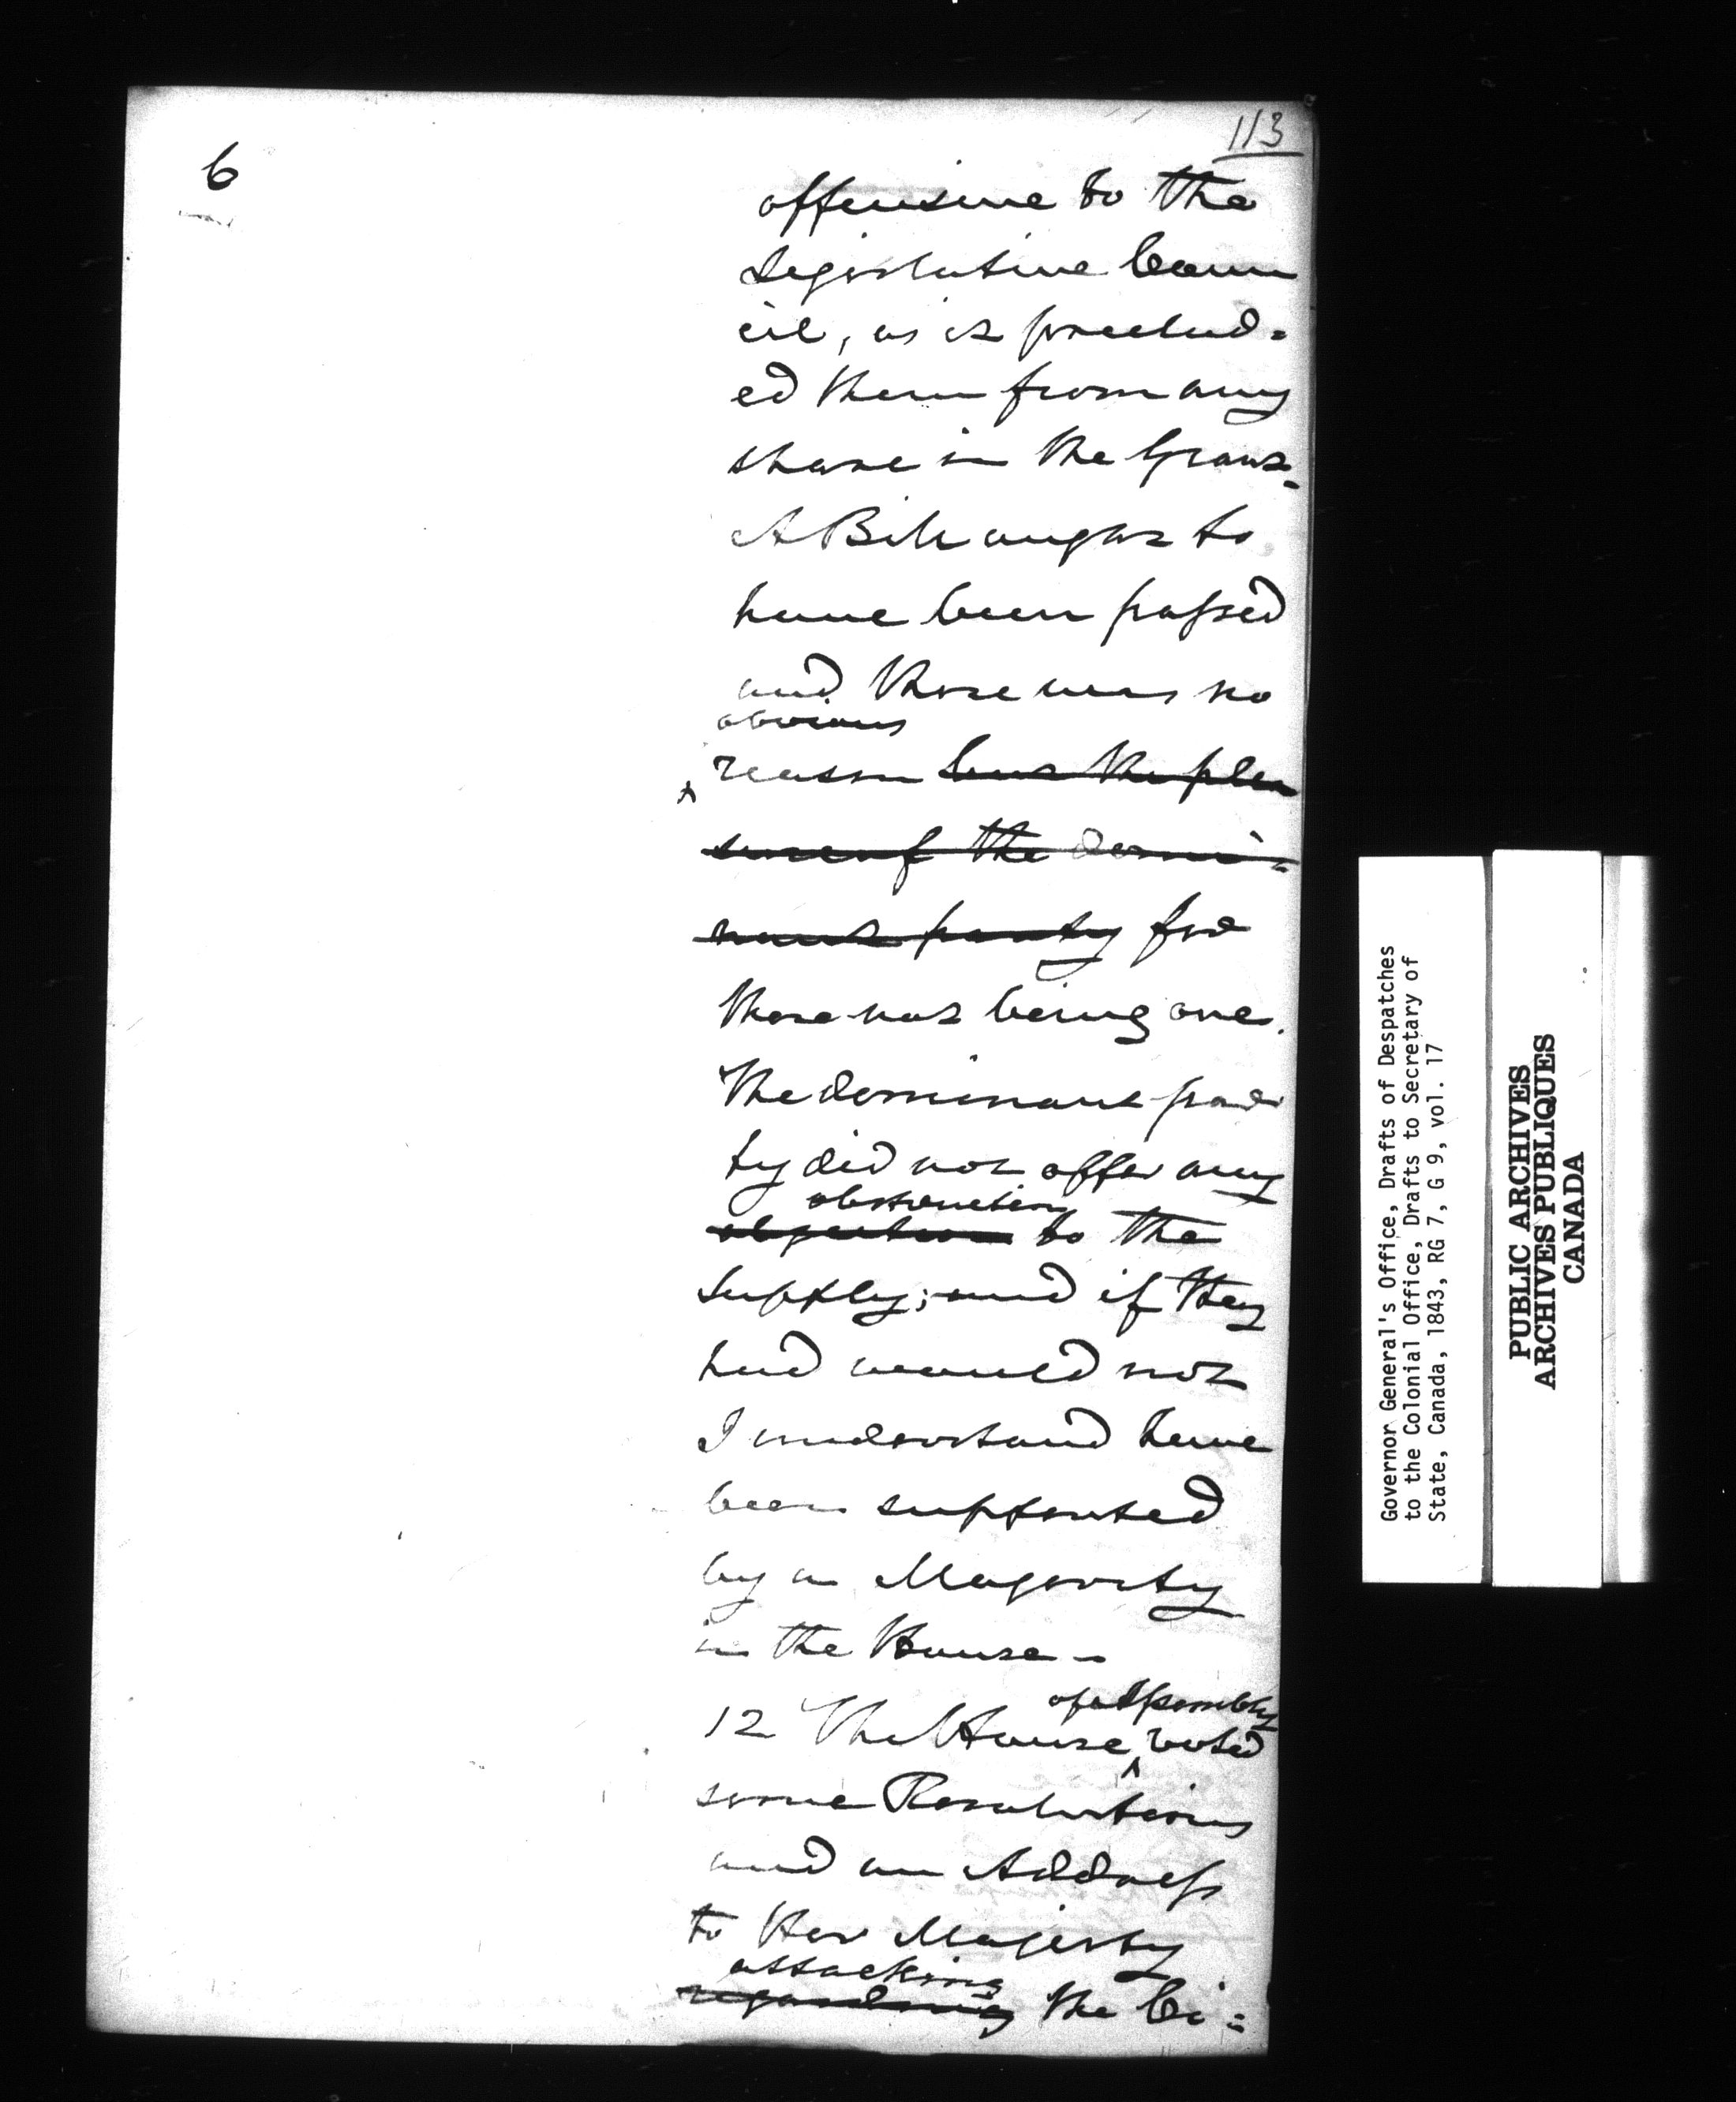 113
6
offensive to the
Legislative Coun
cil, as it preclud=
ed them from any
share in the Grant.
A Bill ought to
have been passed
and there was no
obvious
reason but the plea
sure of the domi=
nant party for
there not being one.
The dominant par
ty did not offer any
obstruction
objection to the
supply; and if they
had would not
I understand have
been supported
by a Majority
in the House -
of Assembly
12 The House voted
some Resolutions
and an Address
to Her Majesty
attacking
regarding the Ci=
Governor General's Office, Drafts of Despatches
to the Colonial Office, Drafts to Secretary of
State, Canada, 1843, RG 7, G 9, vol. 17
PUBLIC ARCHIVES
ARCHIVES PUBLIQUES
CANADA